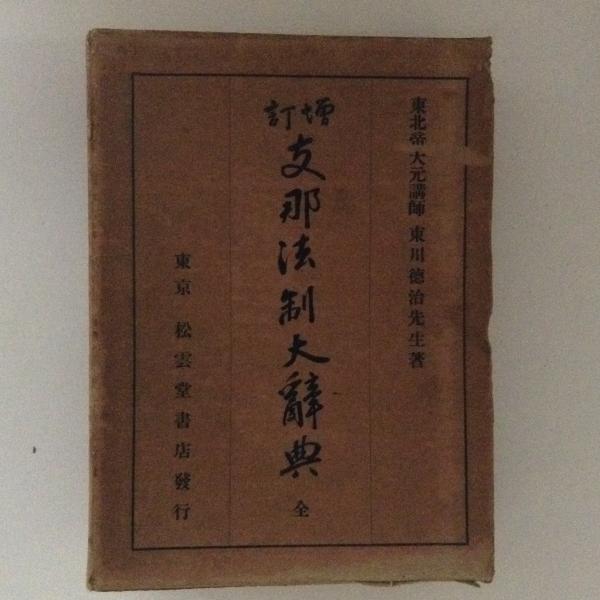 東北帝大元講師 東川徳治先生著
増訂
支那法制大辭典 全
東京 松雲堂書店發行